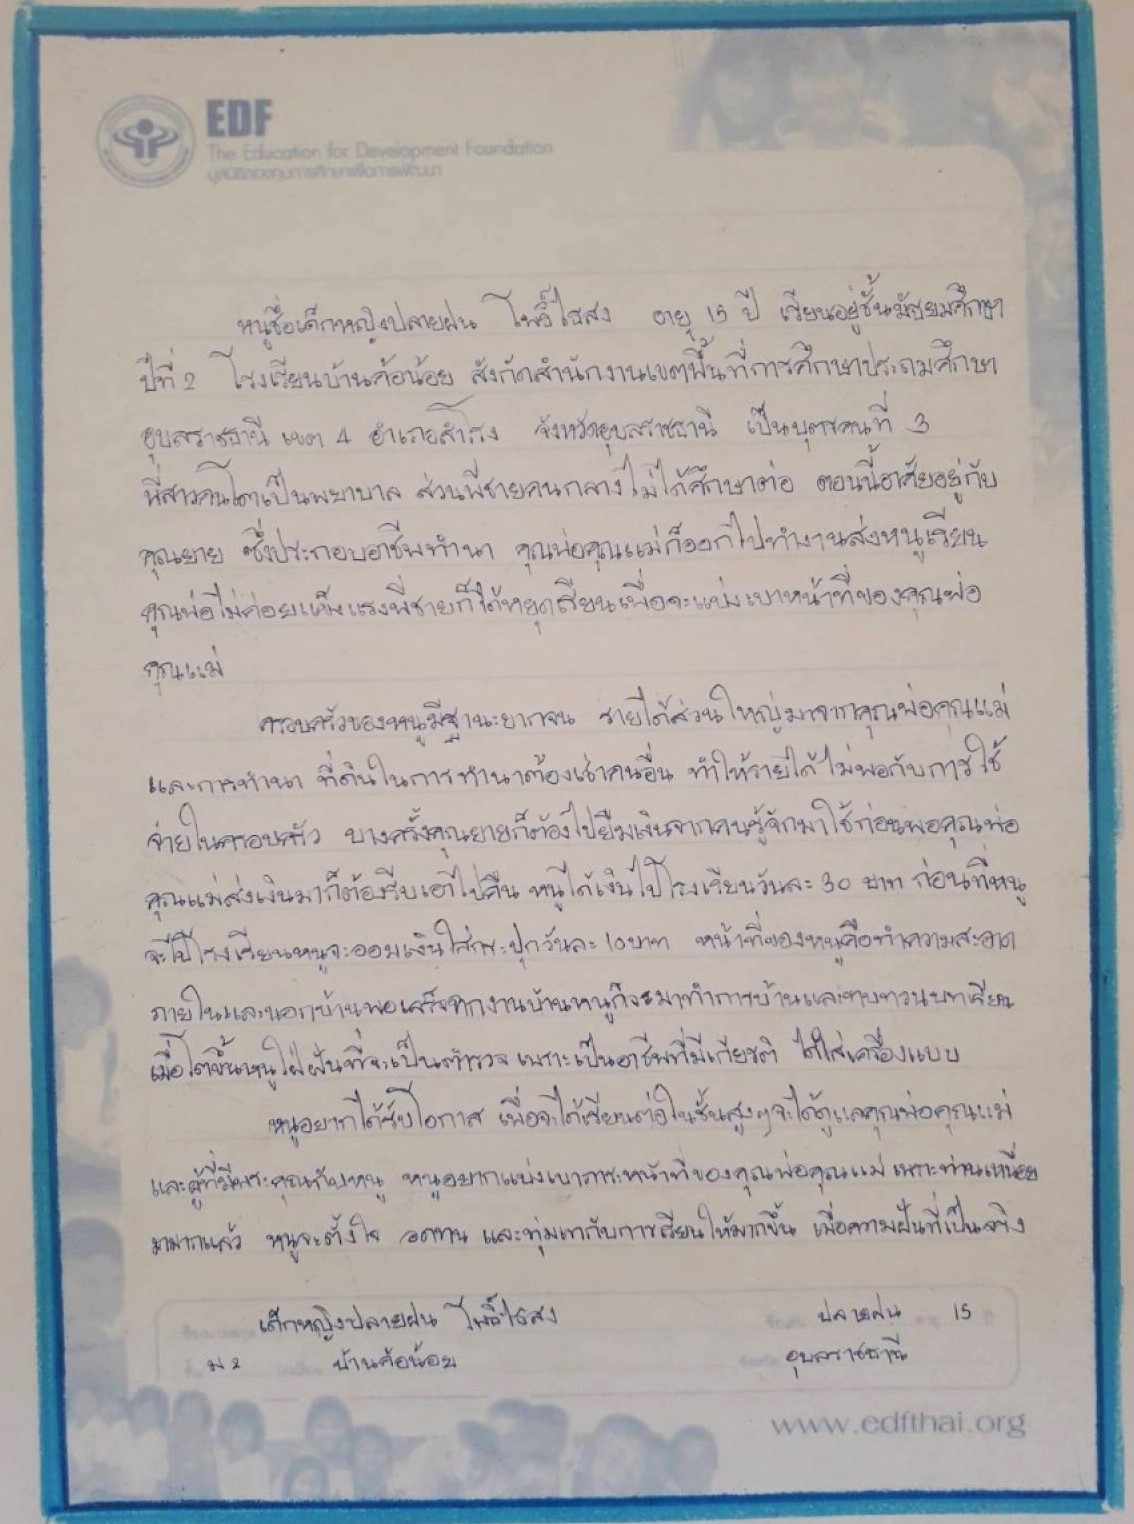 EDF
The Education for Development Foundation
มูลนิธิกองทุนการศึกษาเพื่อการพัฒนา
หนูชื่อเด็กหญิงปลายฝน โพธิ์ไธสง อายุ 15 ปี เรียนอยู่ชั้นมัธยมศึกษา
ปีที่ 2 โรงเรียนบ้านค้อน้อย สังกัดสำนักงานเขตพื้นที่การศึกษาประถมศึกษา
อุบลราชธานี เขต 4 อำเภอสำโรง จังหวัดอุบลราชธานี เป็นบุตรคนที่ 3
พี่สาวคนโตเป็นพยาบาล ส่วนพี่ชายคนกลางไม่ได้ศึกษาต่อ ตอนนี้อาศัยอยู่กับ
คุณยาย ซึ่งประกอบอาชีพทำนา คุณพ่อคุณแม่ก็ออกไปทำงานส่งหนูเรียน
คุณพ่อไม่ค่อยแข็งแรงพี่ชายก็ได้หยุดเรียนเพื่อจะแบ่งเบาหน้าที่ของคุณพ่อ
คุณแม่
ครอบครัวของหนูมีฐานะยากจน รายได้ส่วนใหญ่มาจากคุณพ่อคุณแม่
และการทำนา ที่ดินในการทำนาต้องเช่าคนอื่น ทำให้รายได้ไม่พอกับการใช้
จ่ายในครอบครัว บางครั้งคุณยายก็ต้องไปยืมเงินจากคนรู้จักมาใช้ก่อนพอคุณพ่อ
คุณแม่ส่งเงินมาก็ต้องรีบเอาไปคืน หนูได้เงินไปโรงเรียนวันละ 30 บาท ก่อนที่หนู
จะไปโรงเรียนหนูจะออมเงินใส่กระปุกวันละ 10บาท หน้าที่ของหนูคือทำความสะอาด
ภายในและนอกบ้านพอเสร็จจากงานบ้านหนูก็จะมาทำการบ้านและทบทวนบทเรียน
เมื่อโตขึ้นหนูใฝ่ฝันที่จะเป็นตำรวจ เพราะเป็นอาชีพที่มีเกียรติ ได้ใส่เครื่องแบบ
หนูอยากได้รับโอกาส เพื่อจะได้เรียนต่อในชั้นสูงๆจะได้ดูแลคุณพ่อคุณแม่
และผู้ที่มีพระคุณกับหนู หนูอยากแบ่งเบาภาระหน้าที่ของคุณพ่อคุณแม่ เพราะท่านเหนื่อย
มามากแล้ว หนูจะตั้งใจ อดทน และทุ่มเทกับการเรียนให้มากขึ้น เพื่อความฝันที่เป็นจริง
เด็กหญิงปลายฝน โพธิ์ไธสง ปลายฝน 15
ม 2 บ้านค้อน้อย อุบลราชธานี
www.edfthai.org